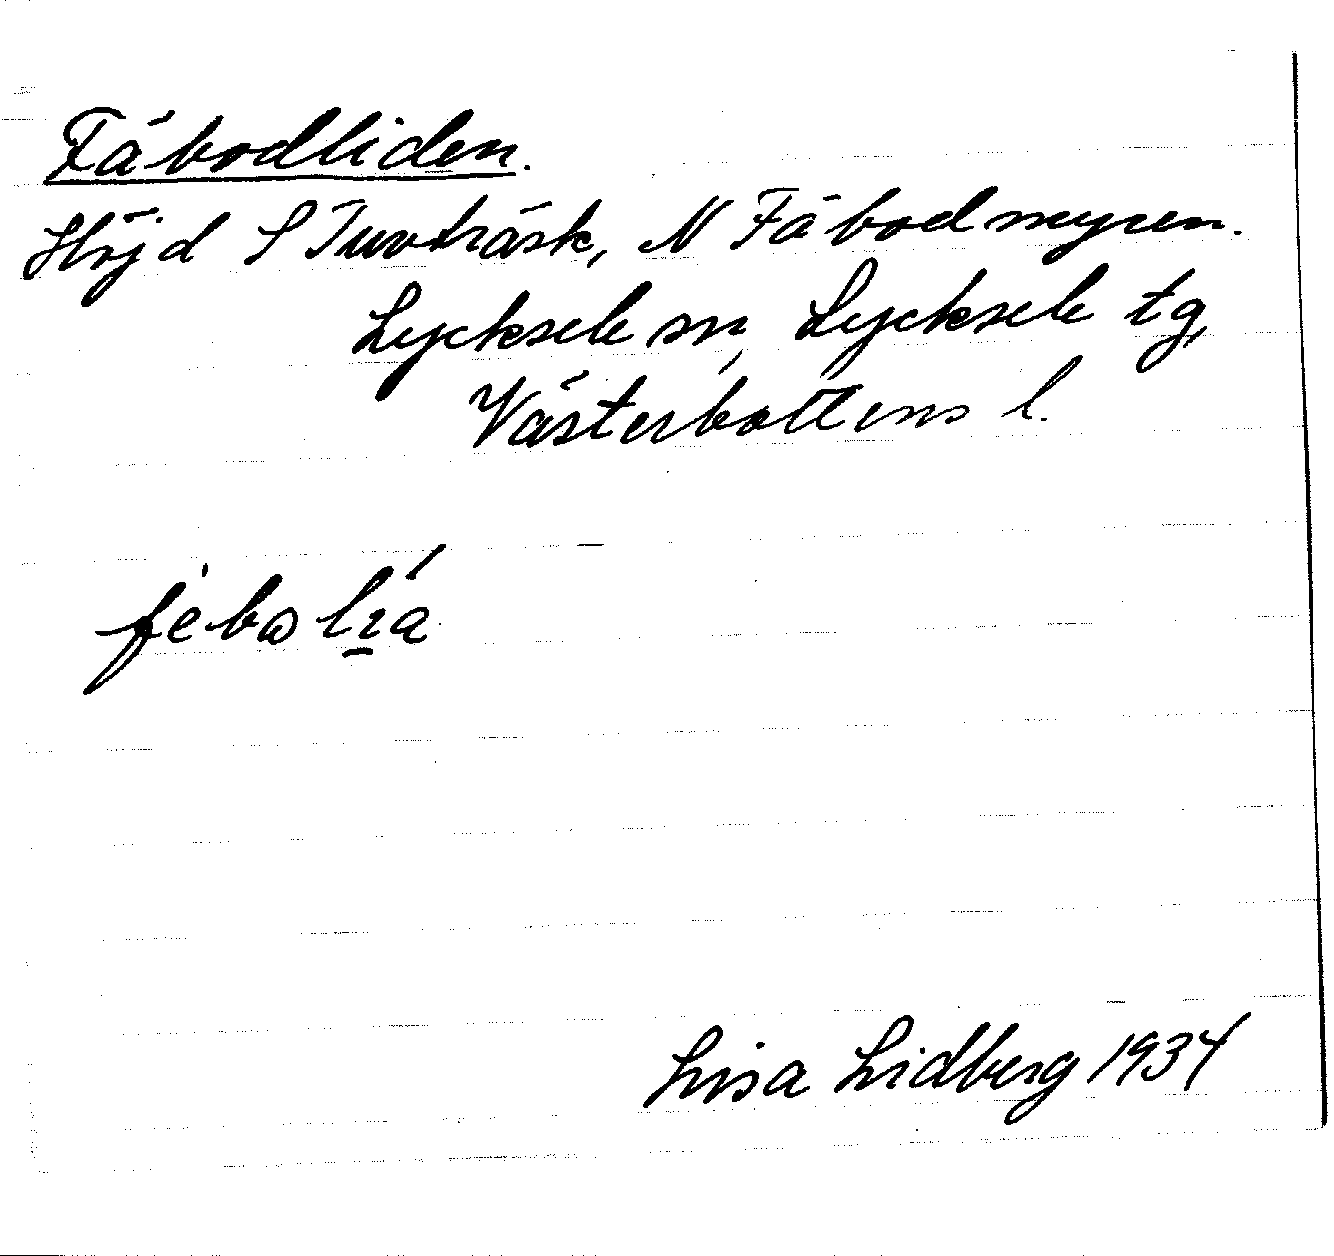 Fäbodliden.
Höjd S Tuvträsk, N Fäbodmyren.
Lycksele sn, Lycksele tg,
Västerbottens l.
Lisa Lidberg 1934